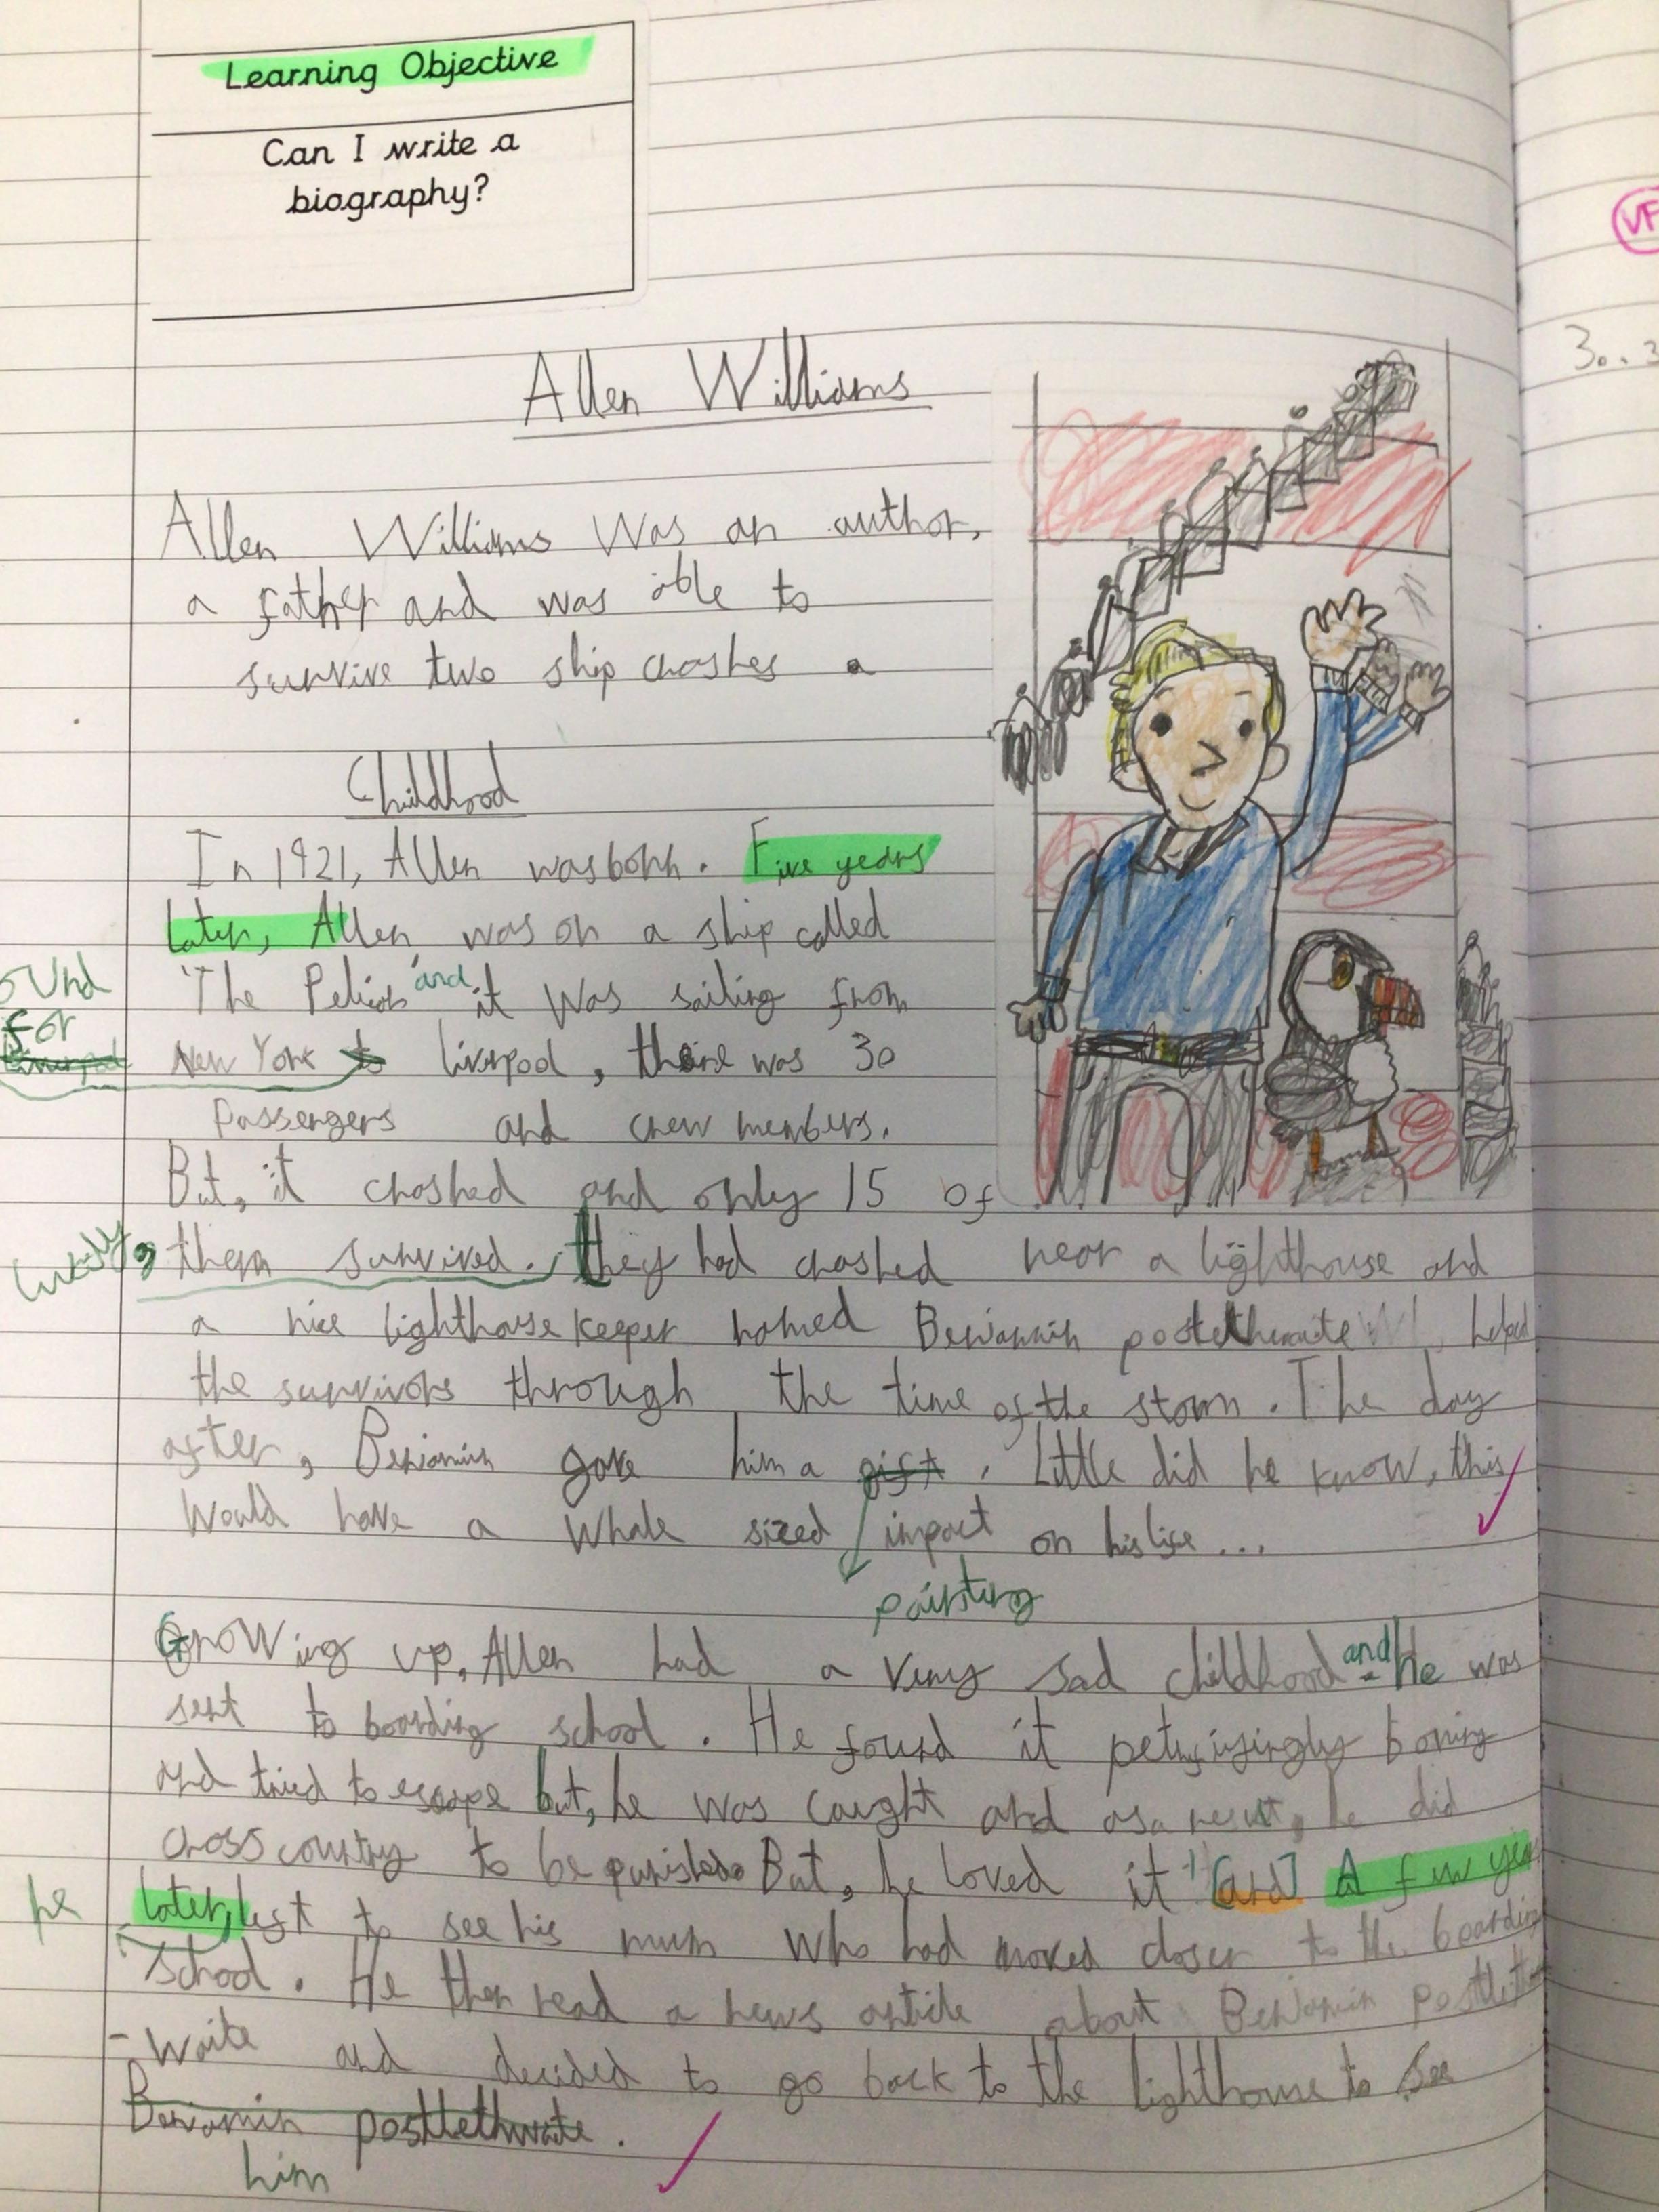 Learning Objective
Can I write a
biography?
VF
3...3
Allen Williams
Allen Williams Was an author,
a father and was able to
survive two ship chrashes
Childhood
In 1921, Allen was born. Five years
later, Allen was on a ship called
The and it Was sailing from
ound
for
New York to liverpool, there was 30
Passengers and crew members.
But, it crashed and only 15 of
luckily, them survived. They had crashed near a lighthouse and
a nice lighthouse keeper named Benjamin postlethwaite helped
the survivors through the time of the storm. The day
after, Benjamin gave him a gift. Little did he know, this
Would have a Whale sized impact on his life...
painting
Growing up, Allen had a very sad childhood and He was
sent to boarding school. He found it boring
and tried to escape but, he was caught and as a result, he did
cross country to be punished. But, he loved it! [and] A few years
he later, left to see his mum who had moved closer to the boarding
school. He then read a news article about Benjamin postleth
-waite and decided to go back to the lighthouse to see
Benjamin postlethwaite.
him